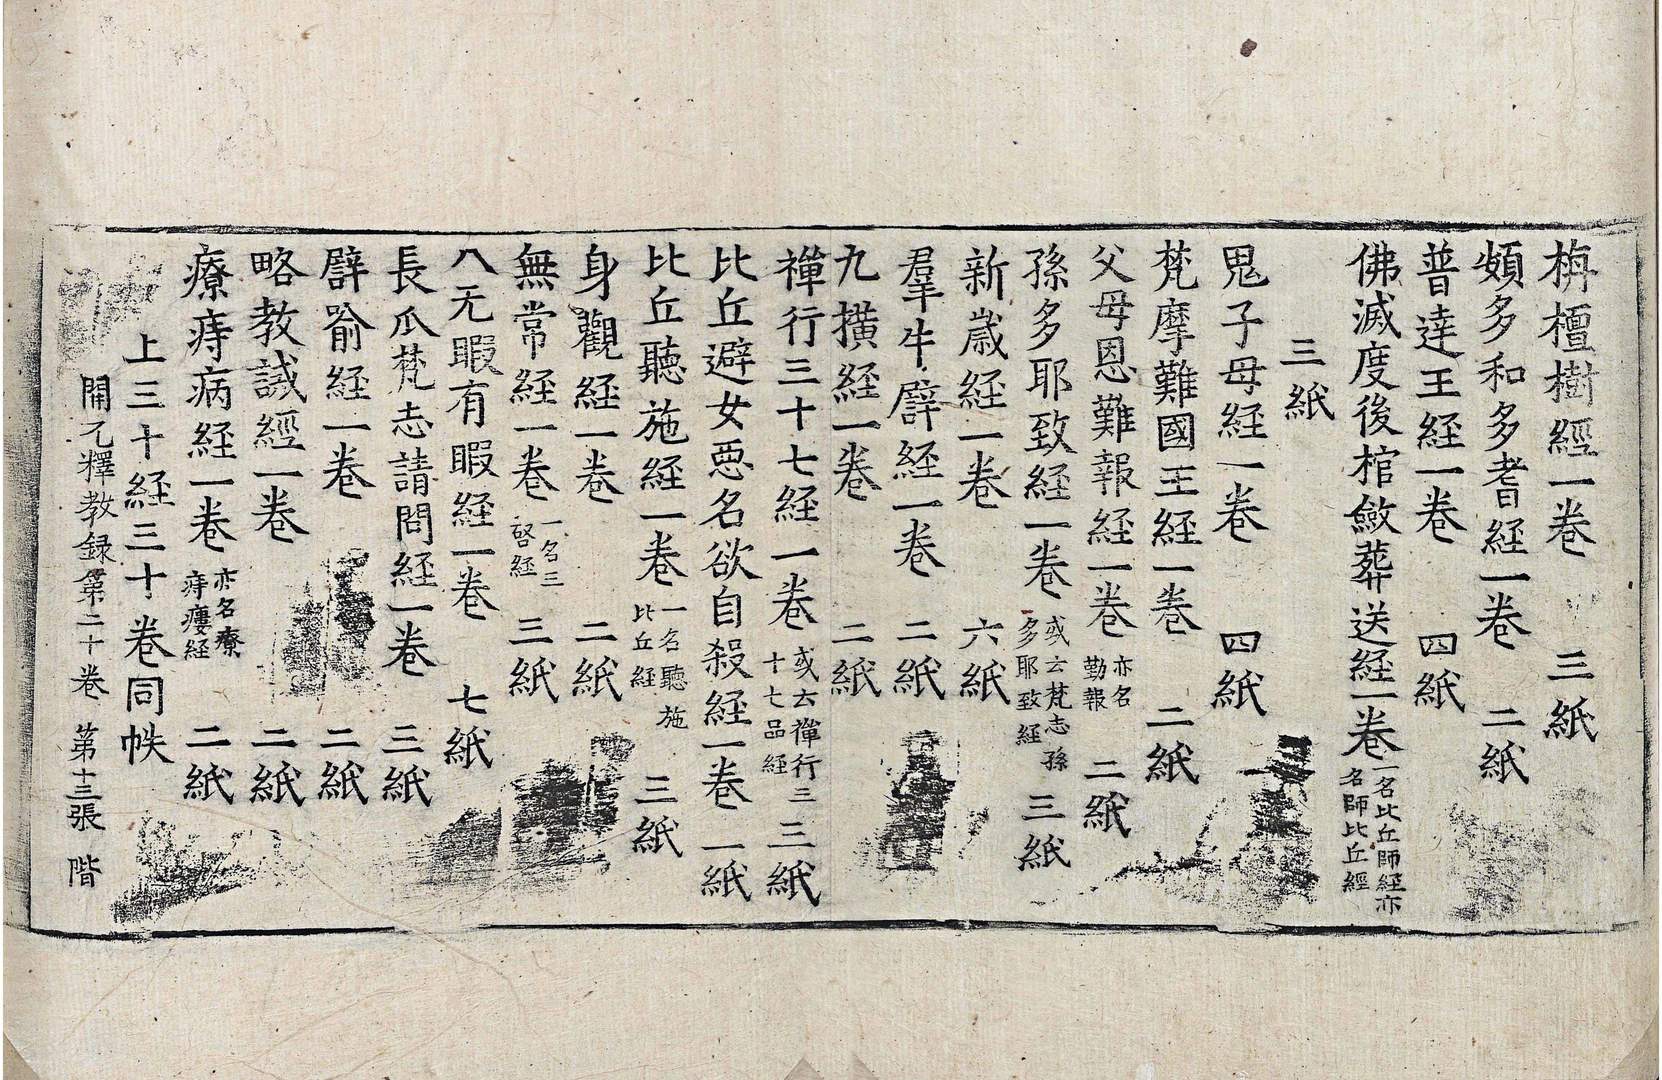 栴檀樹經一卷 三紙
頞多和多耆経一卷 二紙
普達王経一卷 四紙
佛滅度後棺斂葬送経一卷 一名比丘師経亦名師比丘經
三紙
鬼子母経一卷 四紙
梵摩難國王経一卷 二紙
父母恩難報経一卷 亦名勤報 二紙
孫多耶致経一卷 或云梵志孫多耶致經 三紙
新歲経一卷 六紙
羣牛譬経一卷 二紙
九撗経一卷 二紙
禪行三十七経一卷 或云禪行三十七品經 三紙
比丘避女惡名欲自殺経一卷 一紙
比丘聽施経一卷 一名聽施比丘經 三紙
身觀経一卷 二紙
無常経一卷 一名三啓經 三紙
八无暇有暇経一卷 七紙
長爪梵志請問経一卷 三紙
譬喻経一卷 二紙
略教誡經一卷 二紙
療痔病経一卷 亦名療痔瘻経 二紙
上三十経三十卷同帙
開元釋教録第二十卷 第十三張 階